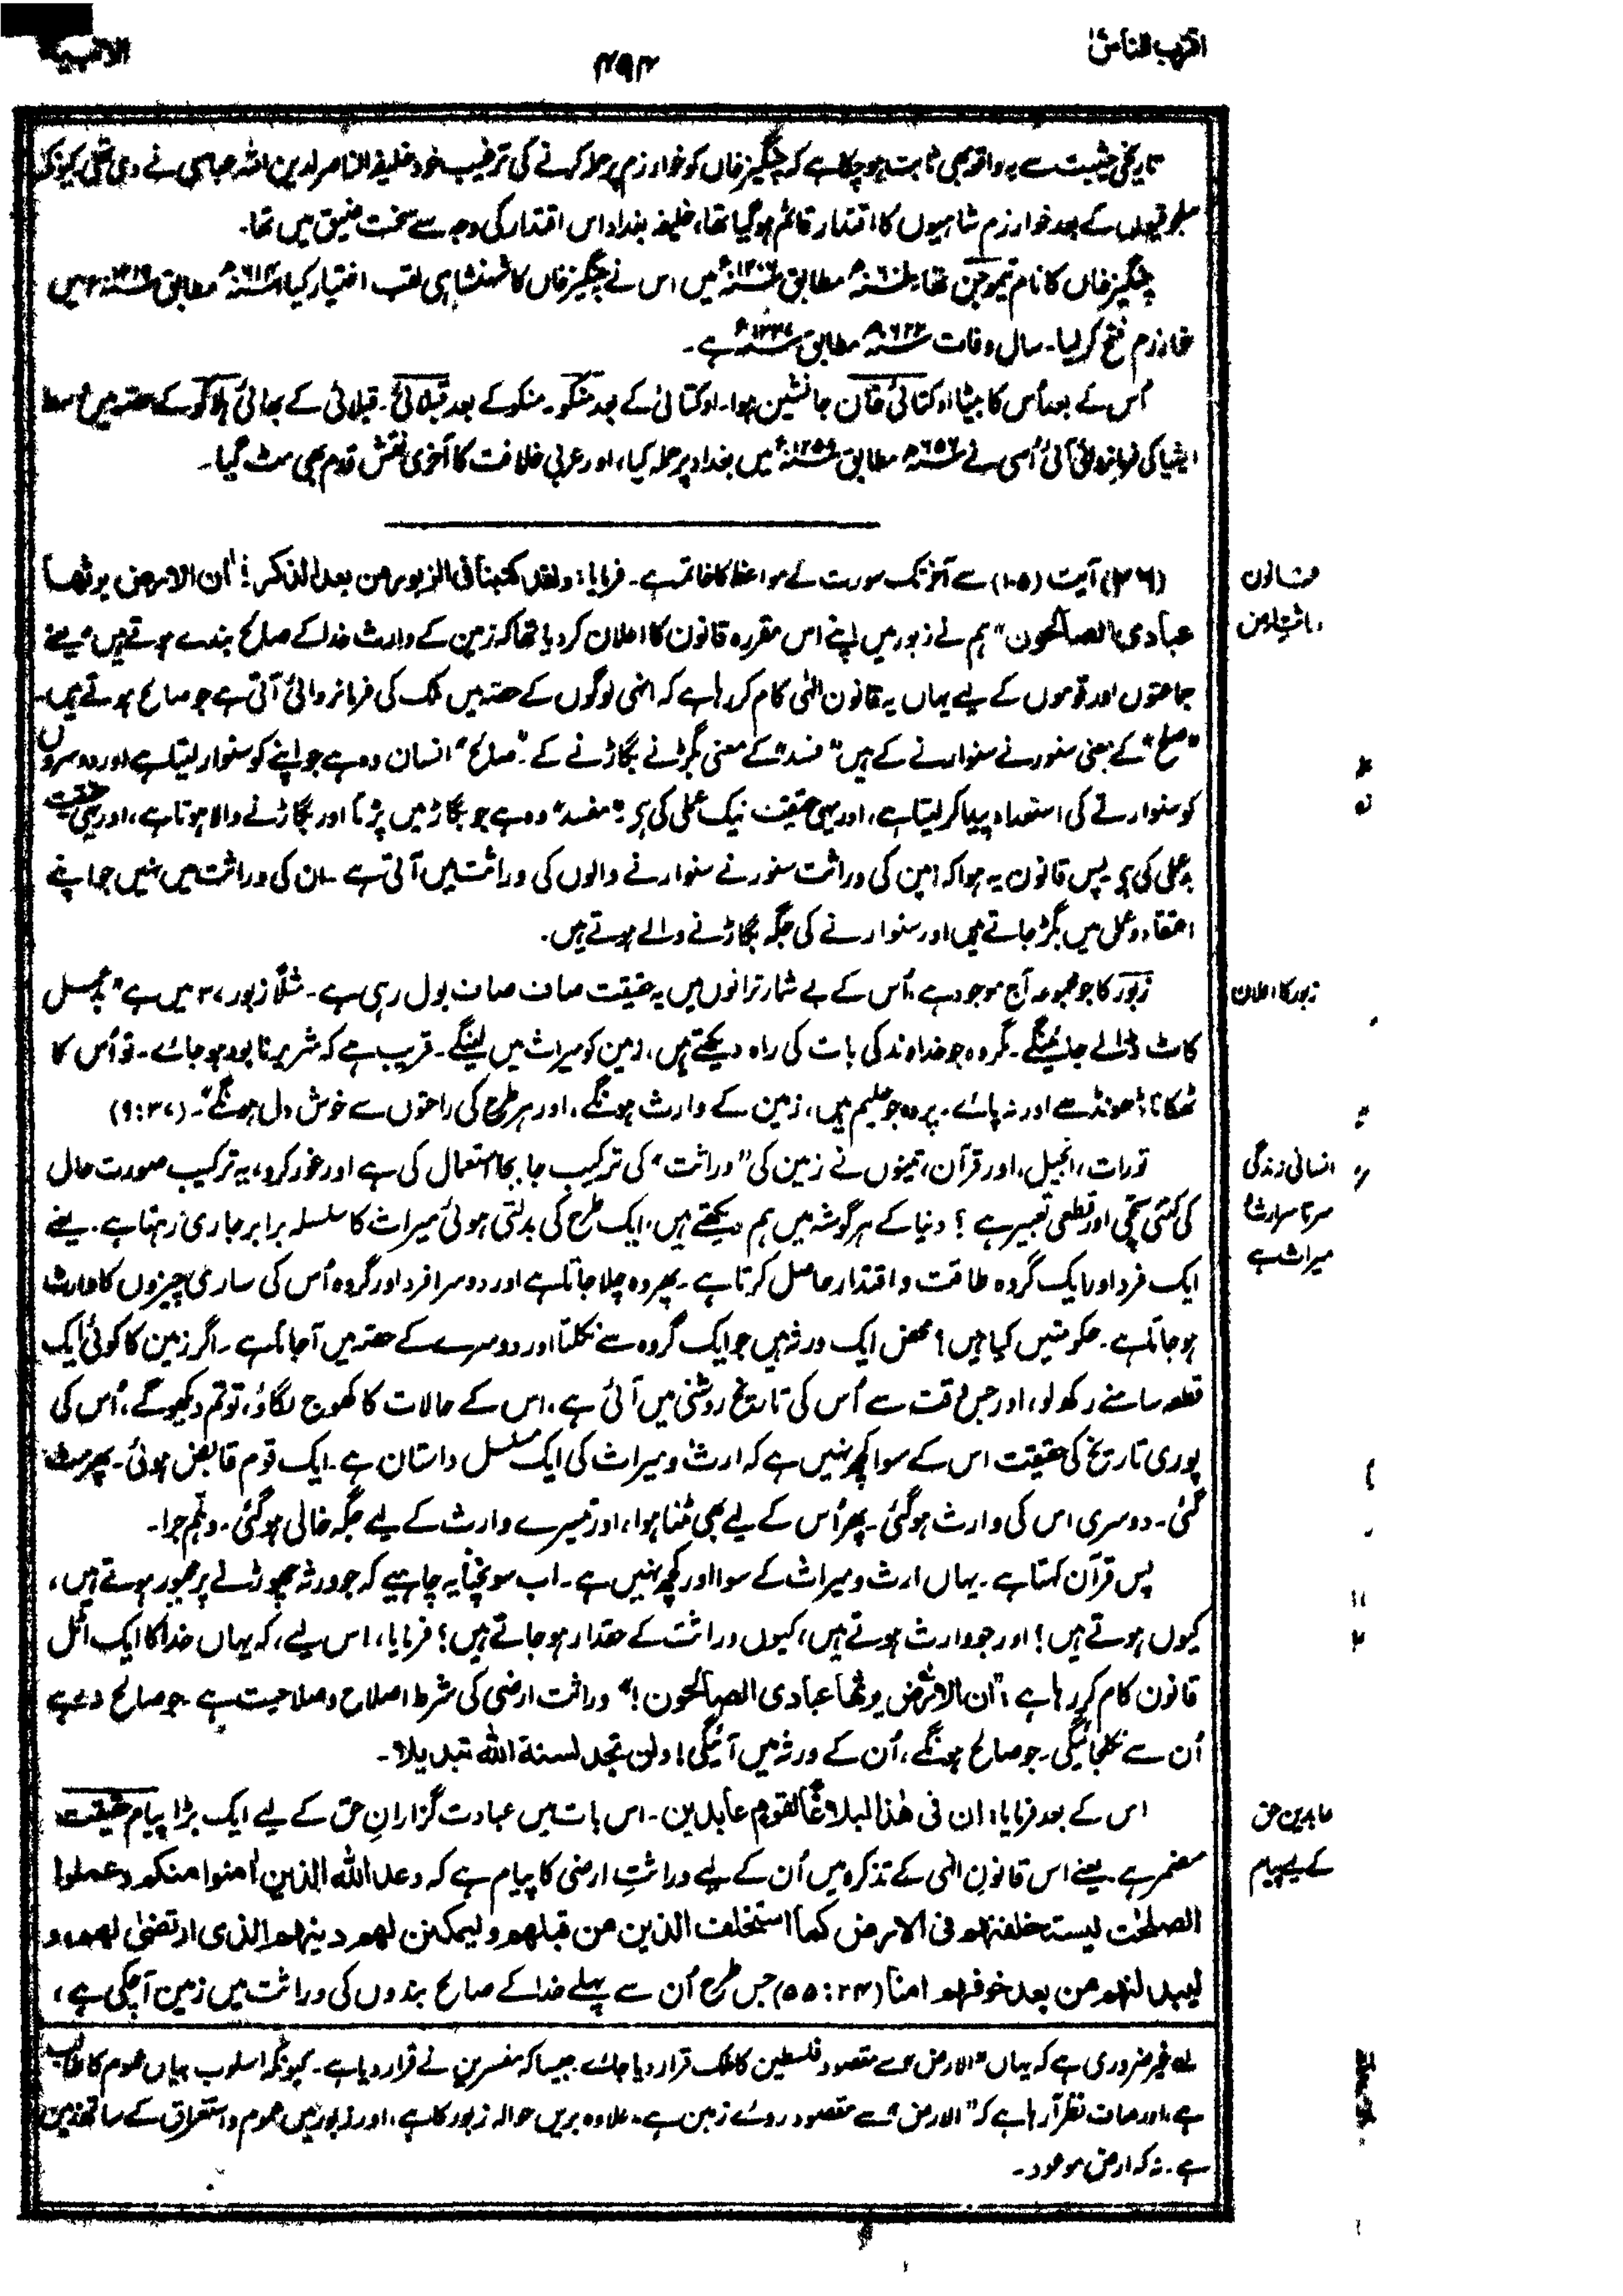 اقترب للناس
۴۹۴
الانبیاء
تاریخی حیثیت سے یہ واقعہ بھی ثابت ہو چکا ہے کہ چنگیز خاں کو خوارزم پر حملہ کرنے کی ترغیب خود خلیفہ الناصر لدین اللہ عباسی نے دی تھی کیونکہ
سلجوقیوں کے بعد خوارزم شاہیوں کا اقتدار قائم ہو گیا تھا، خلیفہ بغداد اس اقتدار کی وجہ سے سخت ضیق میں تھا۔
چنگیز خاں کا نام تیموچن تھا۔ مطابق ۱۲۰۶ء میں اس نے چنگیز خاں کا شہنشاہی لقب اختیار کیا۔ مطابق میں
خوارزم فتح کر لیا۔ سال وفات ۶۲۴ھ مطابق ۱۲۲۷ء ہے۔
اُس کے بعد اُس کا بیٹا اوکتائی قاآن جانشین ہوا۔ اوکتائی کے بعد منگو۔ منکو کے بعد قبلائی۔ قبلائی کے بھائی ہلاکو کے حصہ میں وسط
ایشیا کی فرمانروائی آئی۔ اُسی نے ۶۵۶ھ مطابق ۱۲۵۸ء میں بغداد پر حملہ کیا، اور عربی خلافت کا آخری نقش قدم بھی مٹ گیا۔
(۳۶) آیت (۱۰۵) سے آخر تک سورت کے مواعظ کا خاتمہ ہے۔ فرمایا: ولقد کتبنا فی الزبور من بعد الذکر: ان الارض یرثھا
عبادی الصالحون" ہم نے زبور میں اپنے اس مقررہ قانون کا اعلان کر دیا تھا کہ زمین کے وارث خدا کے صالح بندے ہوتے ہیں یعنے
جماعتوں اور قوموں کے لیے یہاں یہ قانون الٰہی کام کر رہا ہے کہ انہی لوگوں کے حصہ میں ملک کی فرمانروائی آتی ہے جو صالح ہوتے ہیں۔
"صلح" کے معنی سنورنے سنوارنے کے ہیں "فسد" کے معنی بگڑنے بگاڑنے کے۔ "صالح" انسان وہ ہے جو اپنے کو سنوار لیتا ہے اور دوسروں
کو سنوارنے کی استعداد پیدا کر لیتا ہے، اور یہی حقیقت نیک عملی کی ہے۔ "مفسد" وہ ہے جو بگاڑ میں پڑتا اور بگاڑنے والا ہوتا ہے، اور یہی حقیقت
بد عملی کی ہے۔ پس قانون یہ ہوا کہ زمین کی وراثت سنورنے سنوارنے والوں کی وراثت میں آتی ہے۔ ان کی وراثت میں نہیں جو اپنے
اعتقاد و عمل میں بگڑ جاتے ہیں اور سنوارنے کی جگہ بگاڑنے والے ہوتے ہیں۔
زبور کا جو مجموعہ آج موجود ہے اُس کے بے شمار ترانوں میں یہ حقیقت صاف صاف بول رہی ہے۔ مثلاً زبور ۳۷ میں ہے
کاٹ ڈالے جائینگے۔ مگر وہ جو خداوند کی بات کی راہ دیکھتے ہیں، زمین کو میراث میں لینگے۔ قریب ہے کہ شریر نابود ہو جائے۔ تو اُس کا
ٹھکانا ڈھونڈھے اور نہ پائے۔ پر وہ جو حلیم ہیں، زمین کے وارث ہونگے، اور ہر طرح کی راحتوں سے خوش دل ہونگے"۔ (۹:۳۷)
تورات، انجیل، اور قرآن، تینوں نے زمین کی "وراثت" کی ترکیب جا بجا استعمال کی ہے اور غور کرو، یہ ترکیب صورت حال
کی کتنی سچی اور قطعی تعبیر ہے؟ دنیا کے ہر گوشہ میں ہم دیکھتے ہیں، ایک طرح کی بدلتی ہوئی میراث کا سلسلہ برابر جاری رہتا ہے۔ یعنے
ایک فرد اور ایک گروہ طاقت و اقتدار حاصل کرتا ہے۔ پھر وہ چلا جاتا ہے اور دوسرا فرد اور گروہ اُس کی ساری چیزوں کا وارث
ہو جاتا ہے۔ حکومتیں کیا ہیں؟ محض ایک ورثہ ہیں جو ایک گروہ سے نکلتا اور دوسرے کے حصہ میں آجاتا ہے۔ اگر زمین کا کوئی ایک
قطعہ سامنے رکھ لو، اور جس وقت سے اُس کی تاریخ روشنی میں آئی ہے، اس کے حالات کا کھوج لگاؤ، تو تم دیکھو گے، اُس کی
پوری تاریخ کی حقیقت اس کے سوا کچھ نہیں ہے کہ ارث و میراث کی ایک مسلسل داستان ہے۔ ایک قوم قابض ہوئی۔ پھر مٹ
گئی۔ دوسری اس کی وارث ہو گئی۔ پھر اُس کے لیے بھی مٹنا ہوا، اور تیسرے وارث کے لیے جگہ خالی ہو گئی۔ وہلم جرا۔
پس قرآن کہتا ہے۔ یہاں ارث و میراث کے سوا اور کچھ نہیں ہے۔ اب سونچنا یہ چاہیے کہ جو ورثہ چھوڑنے پر مجبور ہوتے ہیں،
کیوں ہوتے ہیں؟ اور جو وارث ہوتے ہیں، کیوں وراثت کے حقدار ہو جاتے ہیں؟ فرمایا، اس لیے، کہ یہاں خدا کا ایک اٹل
قانون کام کر رہا ہے: "ان الارض یرثھا عبادی الصالحون!" وراثت ارضی کی شرط اصلاح و صلاحیت ہے۔ جو صالح نہ رہے
اُن سے نکل جائیگی۔ جو صالح ہونگے، اُن کے ورثہ میں آئیگی! ولن تجد لسنة اللہ تبدیلا۔
اس کے بعد فرمایا: ان فی ھذا لبلاغا لقوم عابدین۔ اس بات میں عبادت گزارانِ حق کے لیے ایک بڑا پیام حقیقت
مضمر ہے یعنے اس قانونِ الٰہی کے تذکرہ میں اُن کے لیے وراثتِ ارضی کا پیام ہے کہ وعد اللہ الذین اٰمنوا منکم وعملوا
الصلحٰت لیستخلفنھم فی الارض کما استخلف الذین من قبلھم ولیمکنن لھم دینھم الذی ارتضیٰ لھم، و
لیبدلنھم من بعد خوفھم امنا (۵۵:۲۴) جس طرح اُن سے پہلے خدا کے صالح بندوں کی وراثت میں زمین آچکی ہے،
لہ غیر ضروری ہے کہ یہاں "الارض" سے مقصود فلسطین کا ملک قرار دیا جائے جیسا کہ مفسرین نے قرار دیا ہے۔ کیونکہ اسلوب بیان عموم کا
ہے، اور صاف نظر آرہا ہے کہ "الارض" سے مقصود روئے زمین ہے۔ علاوہ بریں حوالہ زبور کا ہے، اور زبور میں عموم و استغراق کے ساتھ زمین
ہے۔ نہ کہ ارض موعود۔
قانون
وراثت ارض
زبور کا اعلان
انسانی زندگی
سرتاسر ارث
میراث ہے
عابدین حق
کے لیے پیام